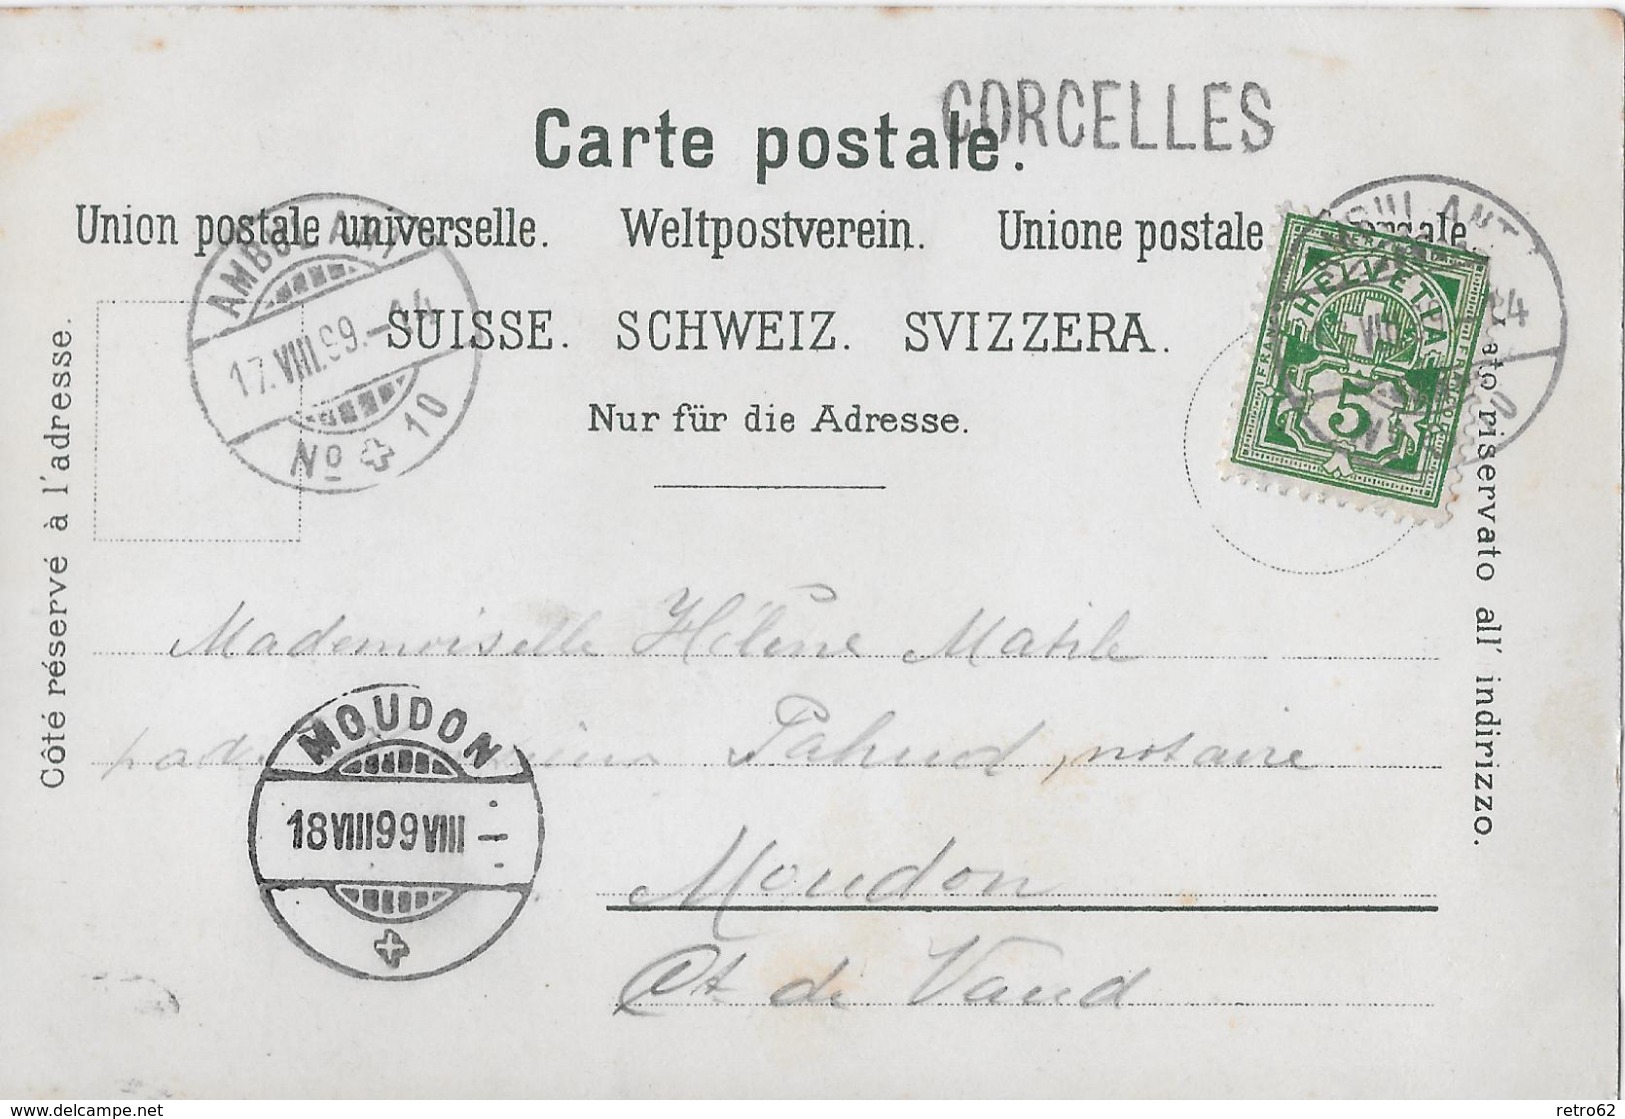 CORCELLES
Carte postale.
Union postale universelle. Weltpostverein. Unione postale
SUISSE. SCHWEIZ. SVIZZERA.
Nur für die Adresse.
Côté réservé à l'adresse.
riservato all' indirizzo.
AMBULANT
17.VIII.99.-14
No 10
HELVETIA
5
Mademoiselle Hélène Matile
Pahud, notaire
Moudon
Ct de Vaud
MOUDON
18 VIII 99 VIII -
www.delcampe.net
retro62